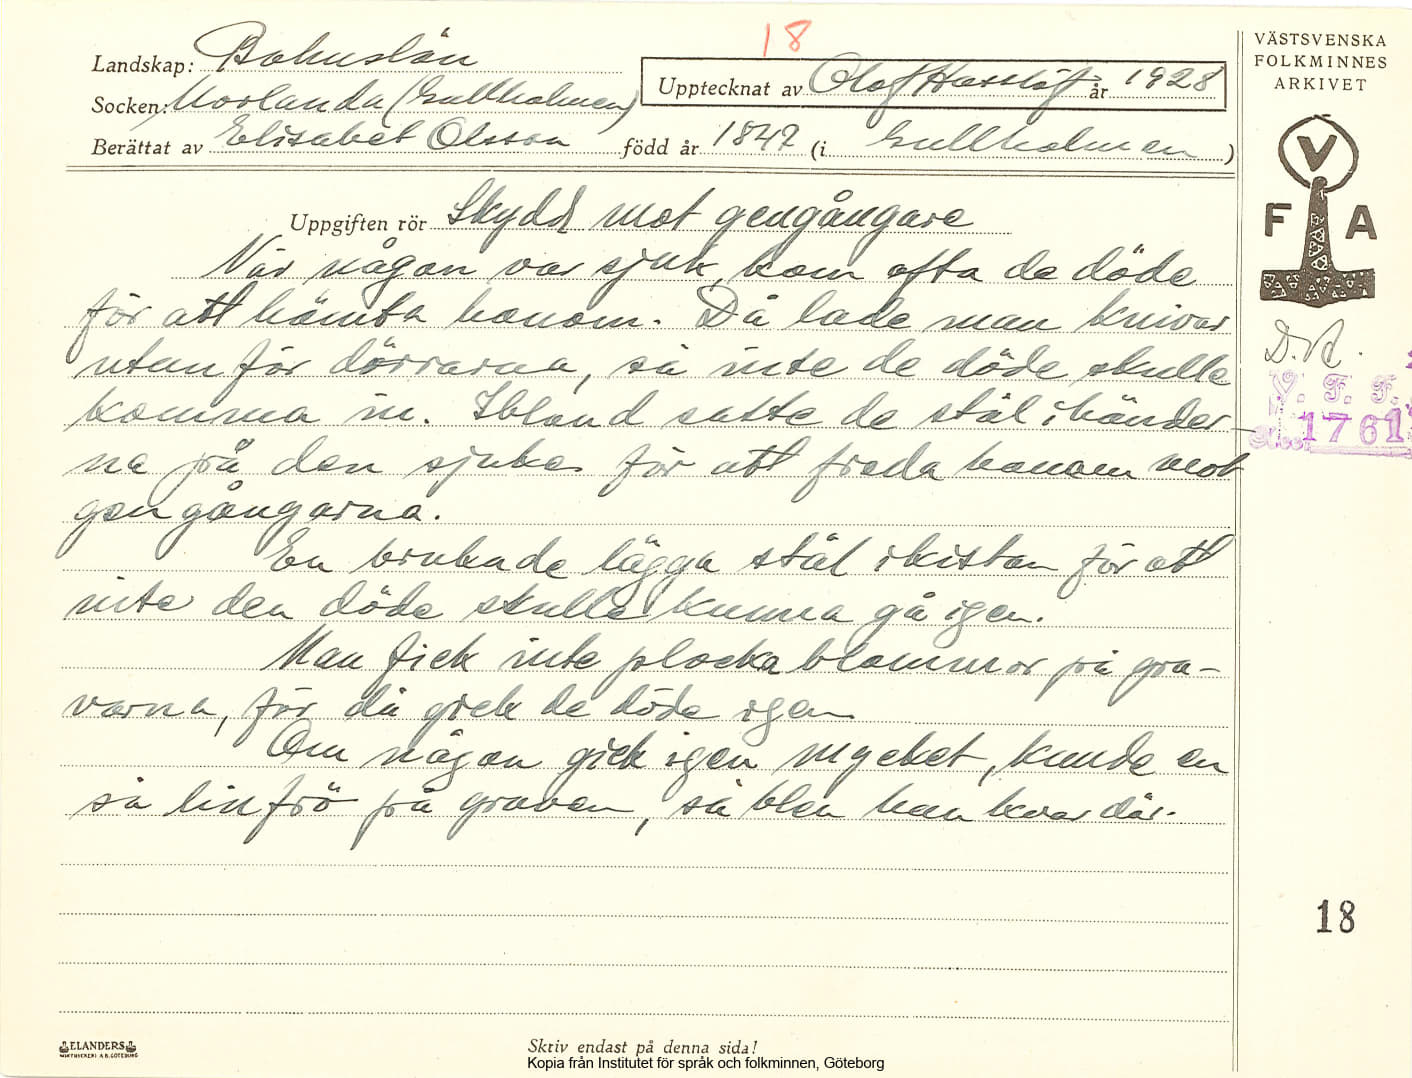 18
Landskap: Bohuslän
Socken: Morlanda (Gullholmen)
Upptecknat av Olof Hasslöf år 1928
Berättat av Elisabet Olsson född år 1847 (i Gullholmen)
VÄSTSVENSKA
FOLKMINNES
ARKIVET
V
F A
Uppgiften rör Skydd mot gengångare
När någon var sjuk, kom ofta de döde
för att hämta honom. Då lade man knivar
utanför dörrarna, så inte de döde skulle
komma in. Ibland satte de stål i händer-
na på den sjuke för att freda honom mot
gengångarna.
En brukade lägga stål i kistan för att
inte den döde skulle kunna gå igen.
Man fick inte plocka blommor på gra-
varna, för då gick de döde igen
Om någon gick igen mycket, kunde en
så linfrö på graven, så blev han kvar där.
D.A.
V. F. F.
1761
18
ELANDERS
Skriv endast på denna sida!
Kopia från Institutet för språk och folkminnen, Göteborg